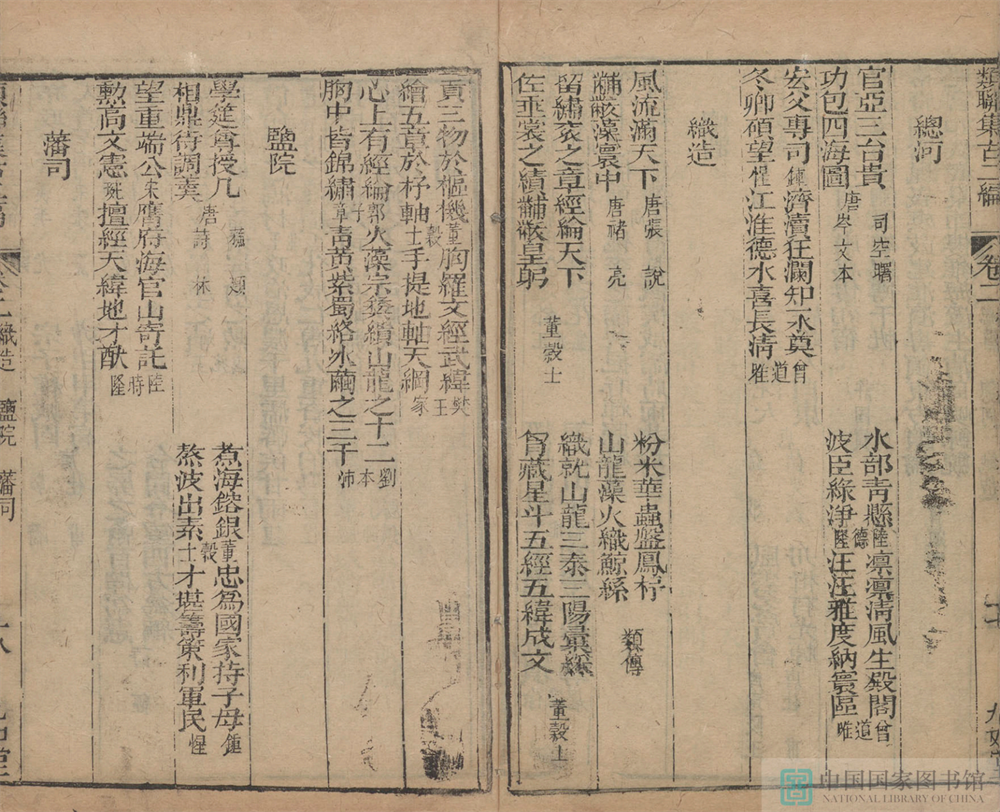 類聯集古二編 卷二
總河
官亞三台貴 司空曙 水部靑懸
功包四海圖 唐岑文本 波臣綠淨 陸德隆
凛凛淸風生殿閣
汪汪雅度納寰區 曾道唯
安父專司 鍾惺 濟瀆狂瀾知水奠
冬卿碩望 江淮德水喜長淸 曾道唯
織造
風流滿天下 唐張說 粉米華蟲盤鳳杼
黼黻藻寰中 唐褚亮 山龍藻火織鯨絲 類傳
留繡衮之章經綸天下 織就山龍三泰三陽景
佐垂裳之績黼黻皇躬 董穀士 胷藏星斗五經五緯成文 董穀士
貢三物於樞機
繪五章於杼軸 董穀士
胸羅文經武緯
手提地軸天綱 樊王家
心上有經綸 郭子章 火藻宗彝繢山龍之十二
胸中皆錦繡 靑黃紫蜀絡氷繭之三千 劉本沛
鹽院
學筵尊授几 蘇頲 煮海鎔銀
相鼎待調羹 唐詩 熬波出素 董穀士
忠為國家持子母
才堪籌策利軍民 鍾惺
望重端公 海官山寄託 陸時隆
勳高文憲 擅經天緯地才猷
藩司
卷二 織造 鹽院 藩司
中国国家图书馆
NATIONAL LIBRARY OF CHINA